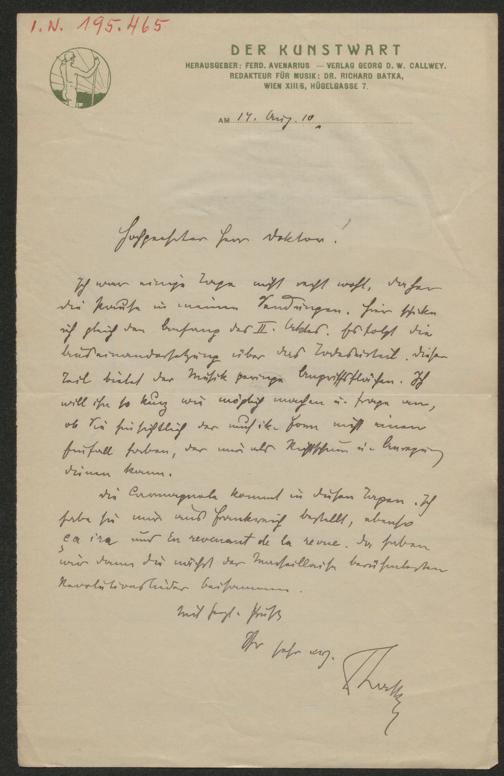 I.N. 195.465
DER KUNSTWART
HERAUSGEBER: FERD. AVENARIUS — VERLAG GEORG D. W. CALLWEY.
REDAKTEUR FÜR MUSIK: DR. RICHARD BATKA,
WIEN XIII/6, HÜGELGASSE 7.
AM 14. Aug. 10
Hochgeehrter Herr Doktor!
Ich war einige Tage nicht recht wohl, daher
die Pause in meinen Sendungen. Hier schicke
ich gleich den Anfang des II. Aktes. Es folgt die
Auseinandersetzung über das Todesurteil. Dieser
Teil bietet der Musik geringe Angriffsflächen. Ich
will ihn so kurz wie möglich machen u. frage an,
ob Sie hinsichtlich der musik. Form nicht einen
Einfall haben, der mir als Richtschnur u. Anregung
dienen kann.
Die Carmagnole kommt in diesen Tagen. Ich
habe sie mir aus Frankreich bestellt, ebenso
ça ira und En revenant de la revue. Da haben
wir dann die nächst der Marseillaise berühmtesten
Revolutionslieder beisammen.
Mit herzl. Gruß
Ihr sehr erg.